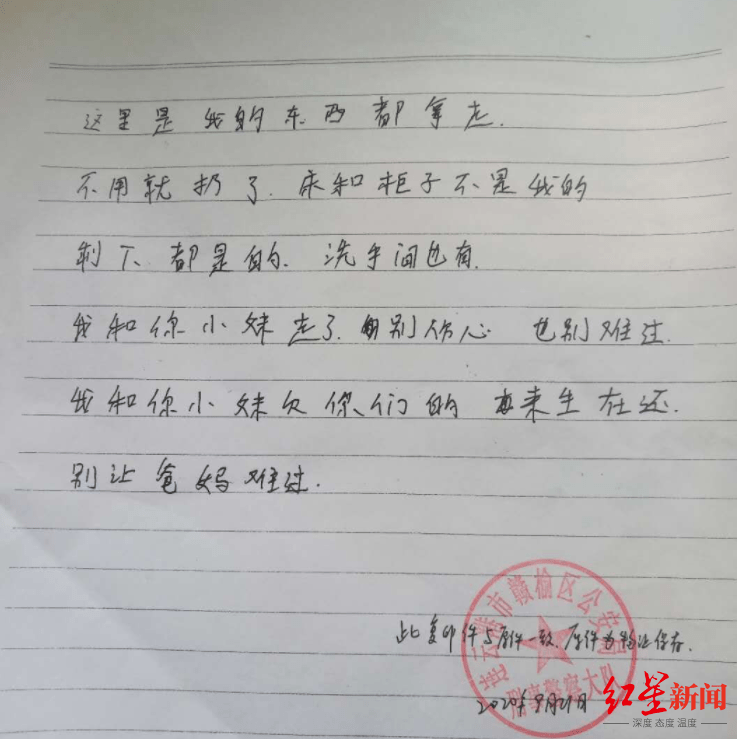 这里是我的东西都拿走.
不用就扔了.床和柜子不是我的
剩下都是的.洗手间也有.
我和你小妹走了.别伤心 也别难过.
我和你小妹欠你们的 来生在还.
别让爸妈难过.
连云港市赣榆区公安局
刑事警察大队
此复印件与原件一致.原件为物证保存.
2020年9月21日
红星新闻
深度 态度 温度